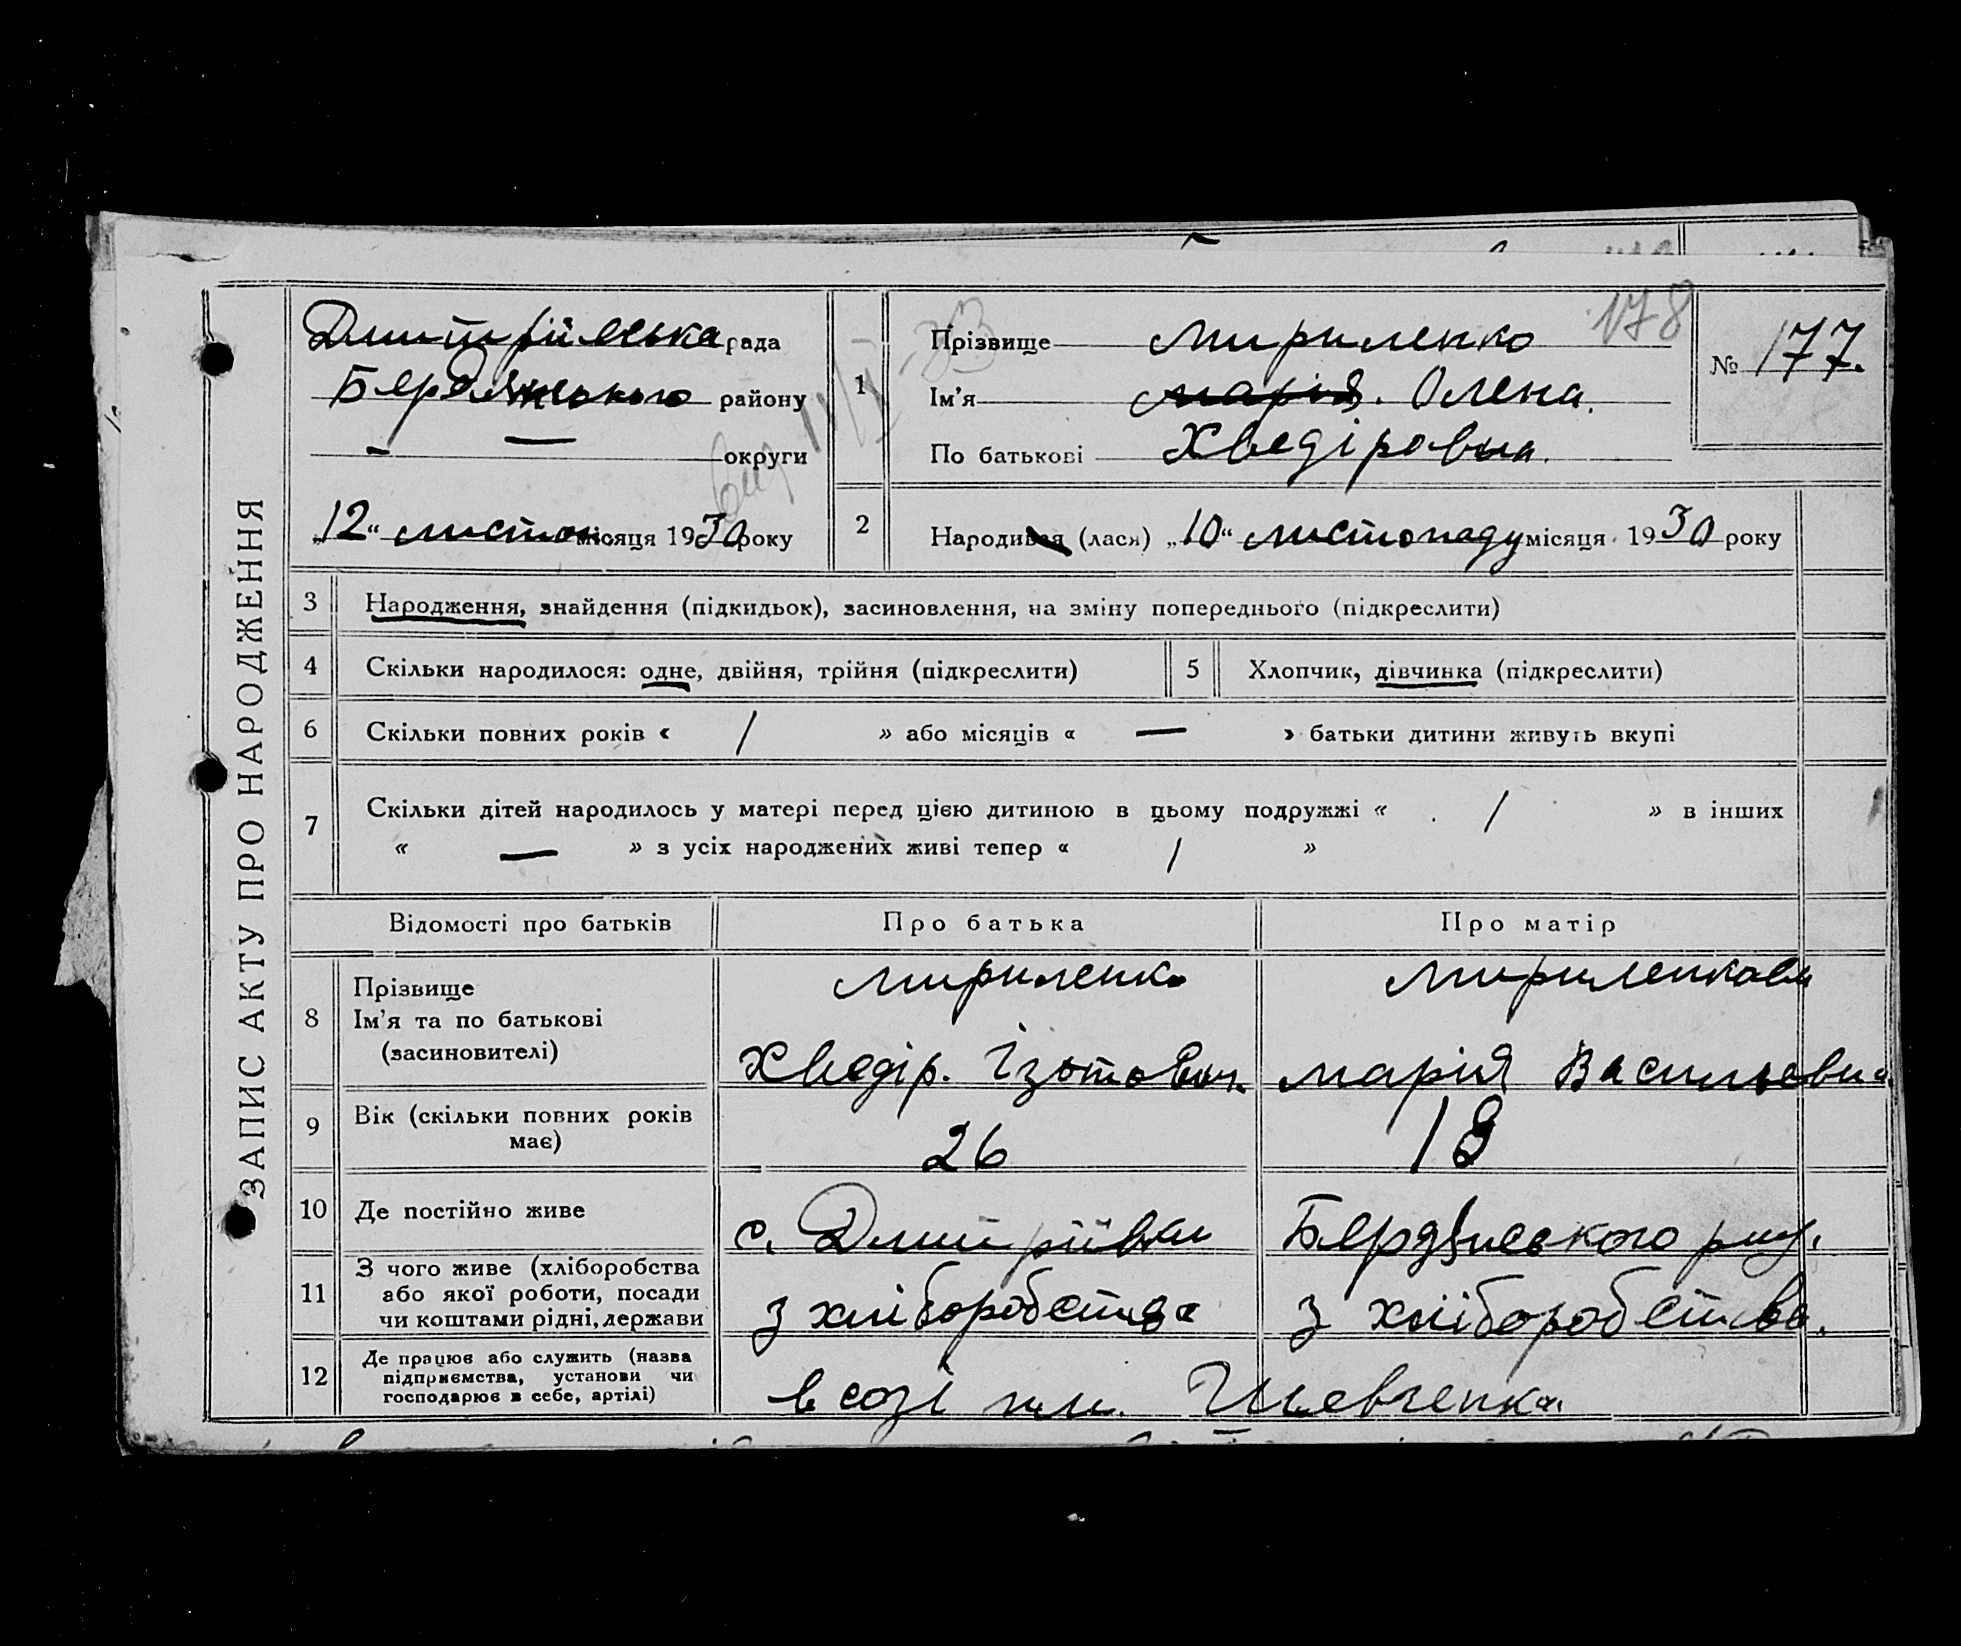 ЗАПИС АКТУ ПРО НАРОДЖЕННЯ
Дмитрійвська рада
Бердянського району
— — округи
„12“ листоп. місяця 1930 року
1
Прізвище Мириленко
Ім'я Марія. Олена.
По батькові Хведіровна.
178
№ 177.
2
Народився (лася) „10“ листопаду місяця 1930 року
3 Народження, знайдення (підкидьок), засиновлення, на зміну попереднього (підкреслити)
4 Скільки народилося: одне, двійня, трійня (підкреслити) 5 Хлопчик, дівчинка (підкреслити)
6 Скільки повних років « 1 » або місяців « — » батьки дитини живуть вкупі
7 Скільки дітей народилось у матері перед цією дитиною в цьому подружжі « 1 » в інших
« — » з усіх народжених живі тепер « 1 »
Відомості про батьків Про батька Про матір
8 Прізвище
Ім'я та по батькові
(засиновителі)
Мириленко
Хведір. Ізотович.
Мириленкова
Марія Васильевна
9 Вік (скільки повних років
має)
26 18
10 Де постійно живе с. Дмитрійвки Бердянського рну.
11 З чого живе (хліборобства
або якої роботи, посади
чи коштами рідні, держави
з хліборобства з хліборобства.
12 Де працює або служить (назва
підприємства, установи чи
господарює в себе, артілі)
в созі ім. Шевченка.